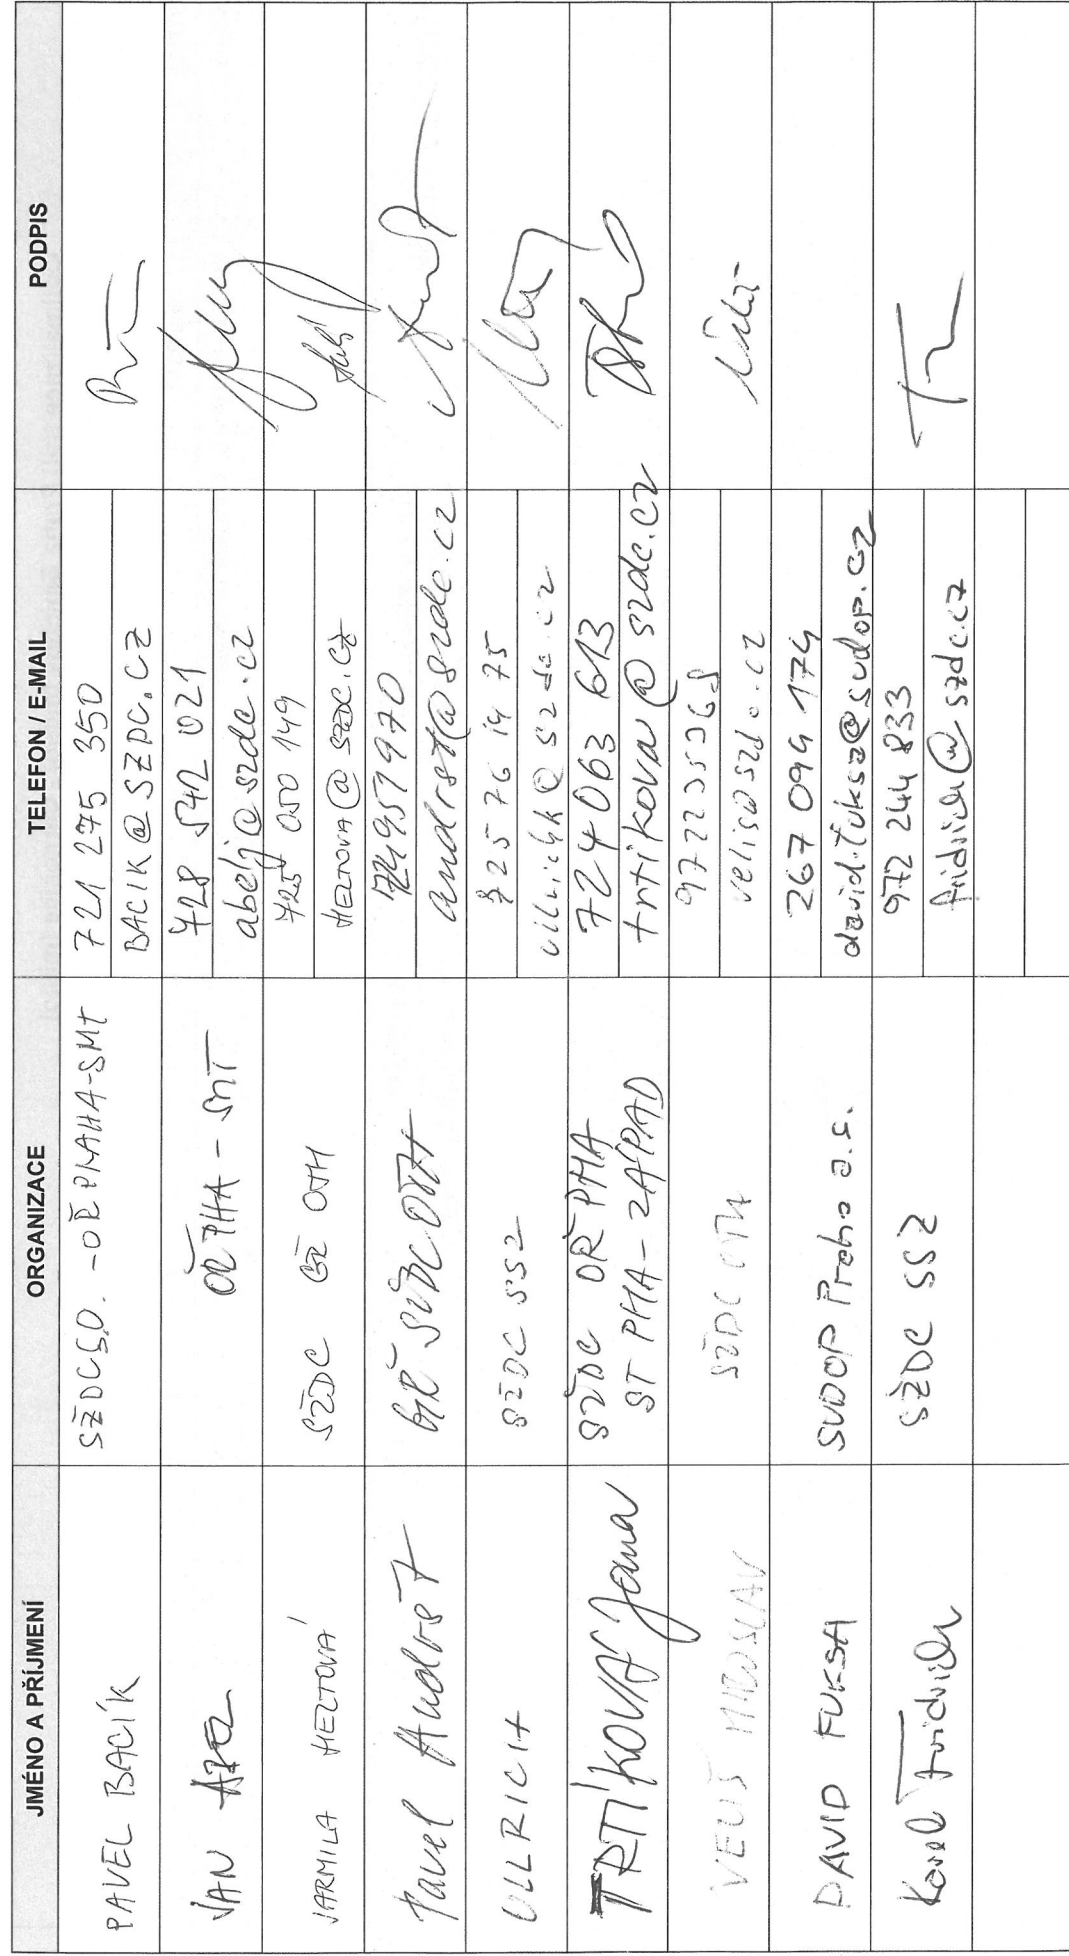 JMÉNO A PŘÍJMENÍ ORGANIZACE TELEFON / E-MAIL PODPIS
PAVEL BACÍK SŽDC S.O. - OŘ PRAHA-SMT 721 275 350
BACIK@SZDC.CZ
JAN ABEL OŘ PHA - SMT 728 542 021
abelj@szdc.cz
JARMILA HELTOVÁ SŽDC GŘ OTH 725 050 149
HELTOVA@SZDC.CZ
Pavel Andrst GŘ SŽDC OTH 724951970
andrst@szdc.cz
ULLRICH SŽDC SSZ
TRTÍKOVÁ Jana SŽDC OŘ PHA 724 063 613
ST PHA - ZÁPAD trtikova@szdc.cz
VELIŠ MIROSLAV SŽDC OTH
velis@szdc.cz
DAVID FUKSA SUDOP Praha a.s. 267 094 174
david.fuksa@sudop.cz
Karel Fridrich SŽDC SSZ 972 244 833
fridrich@szdc.cz